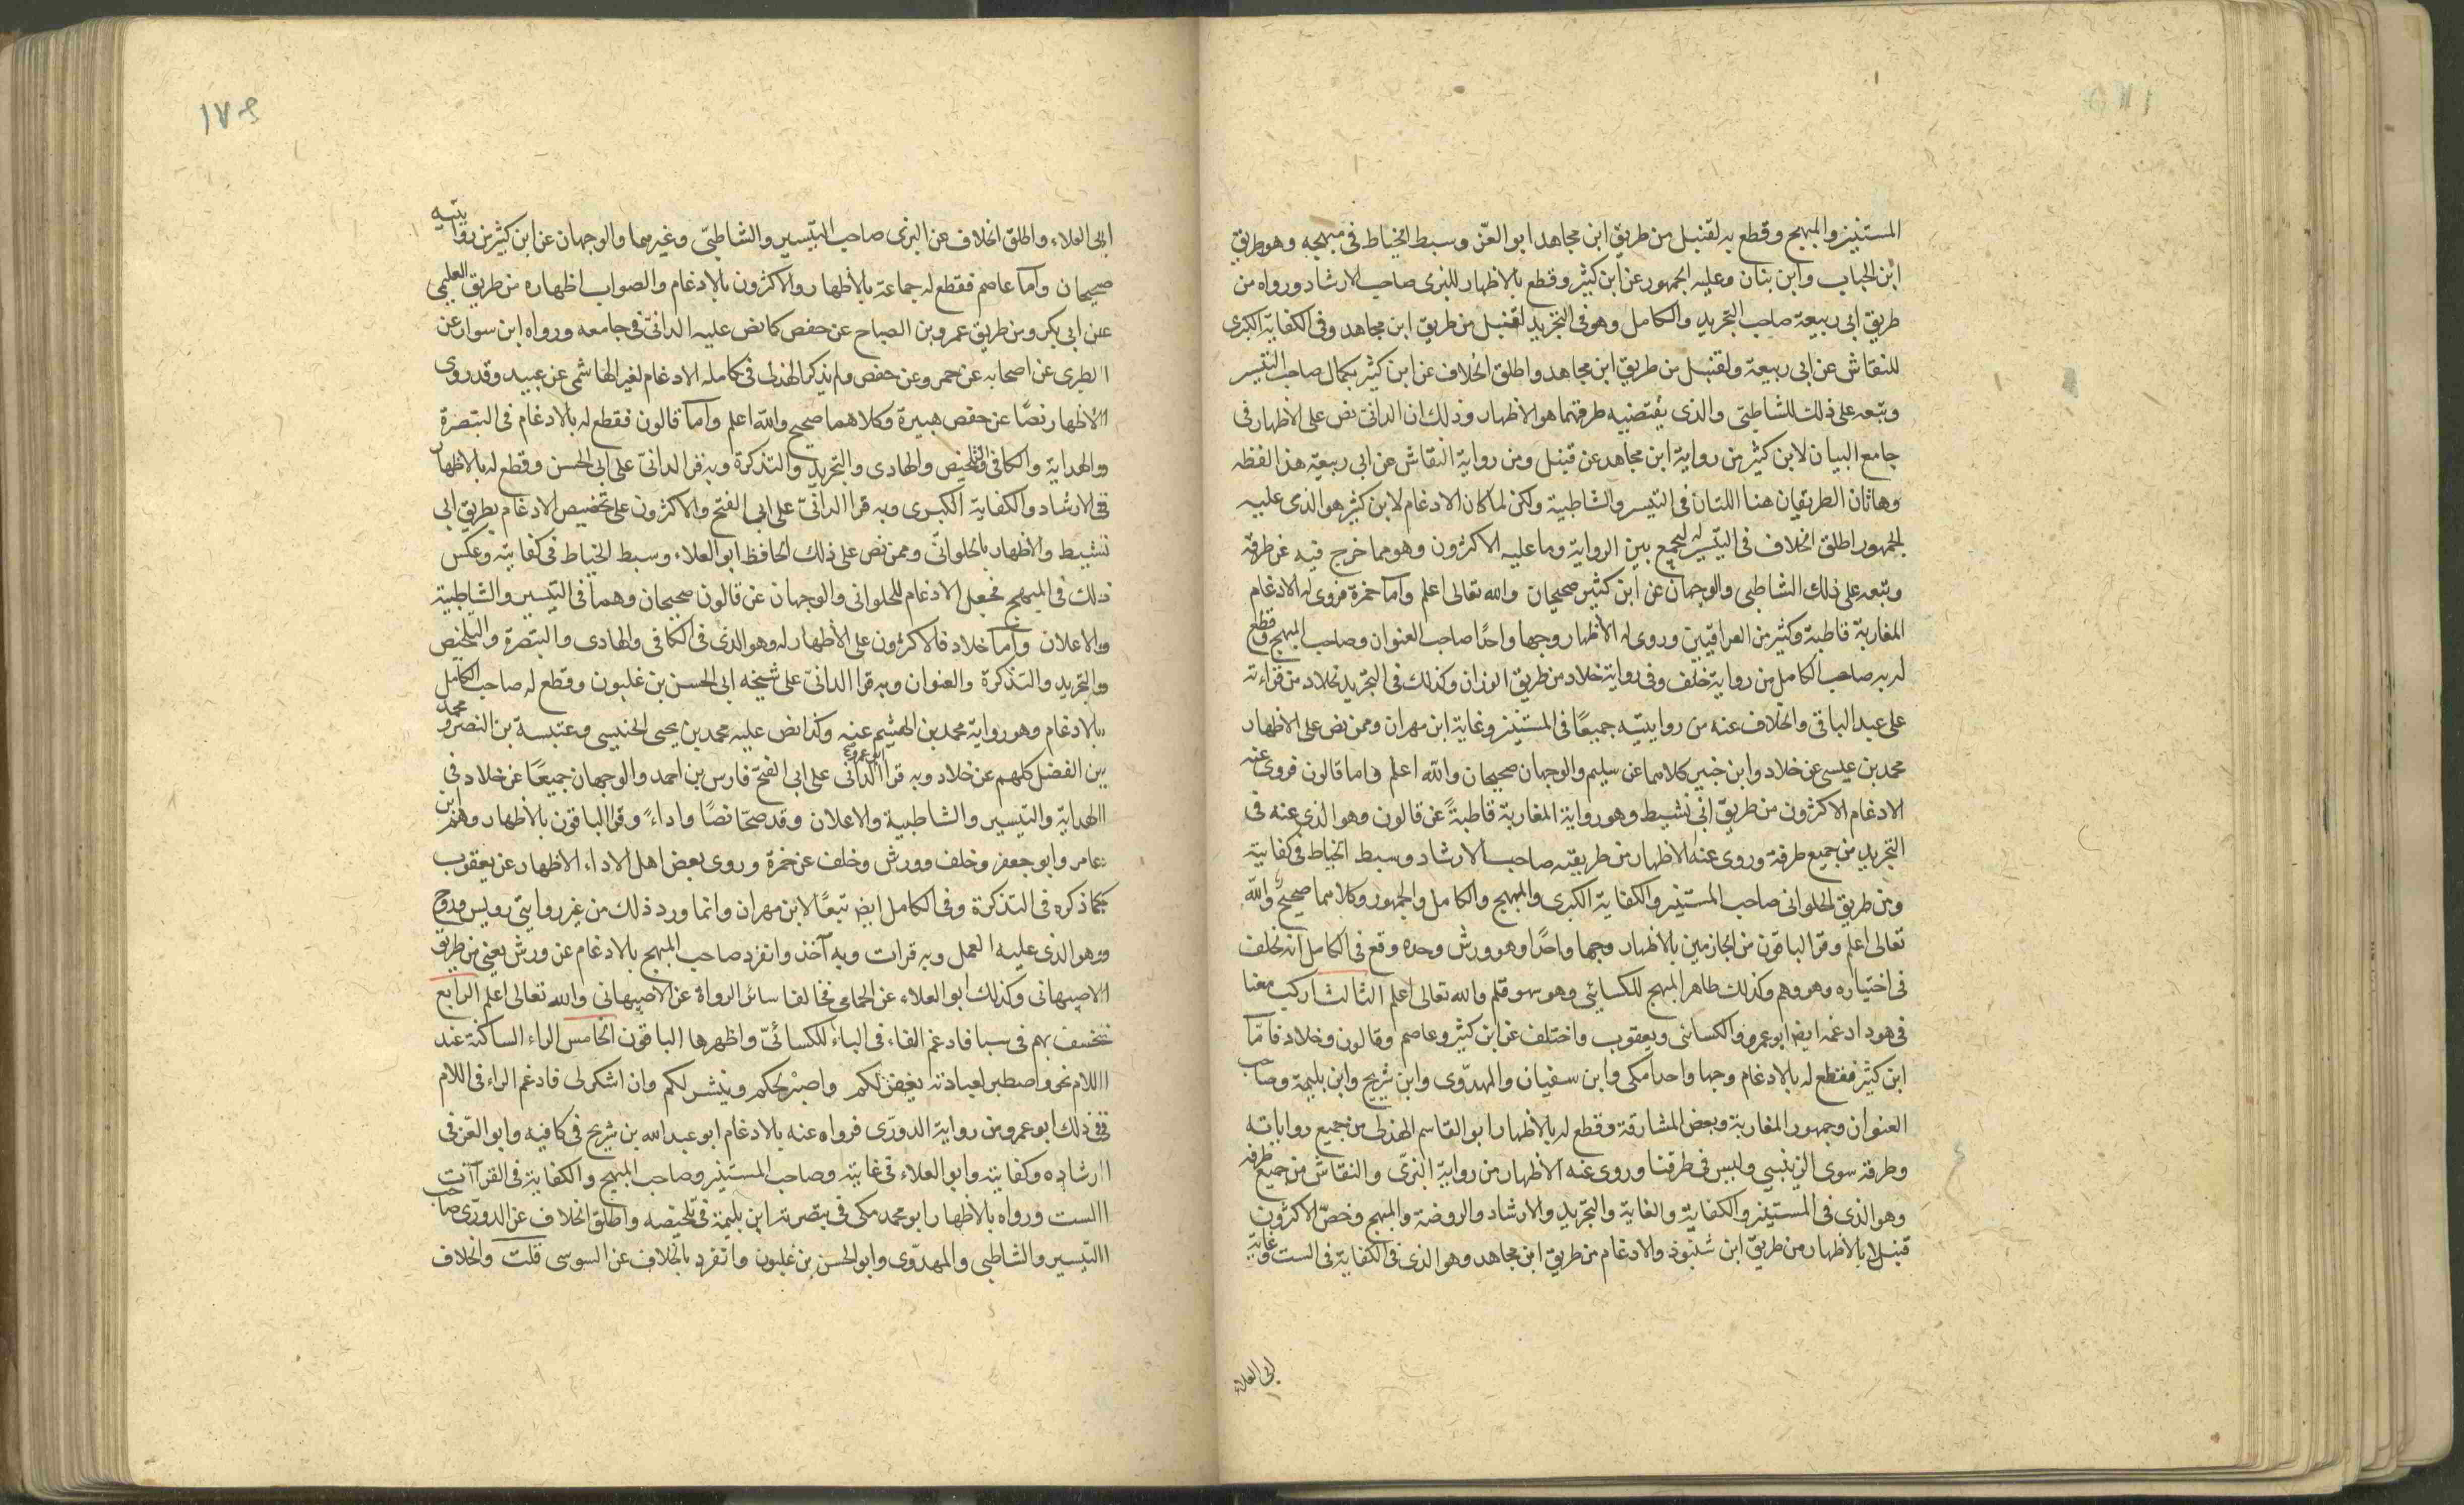 المستنير والمبهج وقطع به لقنبل من طريق ابن مجاهد ابو العز وسبط الخياط فى مبهجه وهو طريق
ابن الحباب وابن بنان وعليه الجمهور عن ابن كثير وقطع بالاظهار للبزى صاحب الارشاد ورواه من
طريق ابى ربيعة صاحب التجريد والكامل وهو فى التجريد لقنبل من طريق ابن مجاهد وفى الكفاية الكبرى
للنقاش عن ابى ربيعة ولقنبل من طريق ابن مجاهد واطلق الخلاف عن ابن كثير بكماله صاحب التيسر
وتبعه على ذلك للشاطبىّ والذى يقتضيه طرقهما هو الاظهار وذلك ان الدانىّ نص على الاظهار فى
جامع البيان لابن كثير من رواية ابن مجاهد عن قنبل ومن رواية النقاش عن ابى ربيعة هذا لفظه
وهاتان الطريقان هنا اللتان فى التيسر والشاطبية ولكن لما كان الادغام لابن كثير هو الذى عليه
الجمهور اطلق الخلاف فى التيسير له ليجمع بين الرواية وما عليه الاكثرون وهو مما خرج فيه عن طرقه
وتبعه على ذلك الشاطبى والوجهان عن ابن كثير صحيحان والله تعالى اعلم واما حمزة فروى له الادغام
المغاربة قاطبة وكثير من العراقيين وروى له الاظهار وجها واحدًا صاحب العنوان وصاحب المبهج وقطع
له به صاحب الكامل من رواية خلف وفى رواية خلاد من طريق الوزان وكذلك فى التجريد لخلاد من قراءته
على عبد الباقى والخلاف عنه من روايتيه جميعًا فى المستنير وغاية ابن مهران وممن نص على الاظهار
محمد بن عيسى عن خلاد وابن جبير كلاهما عن سليم والوجهان صحيحان والله اعلم واما قالون فروى عنه
الادغام الاكثرون من طريق ابى نشيط وهو رواية المغاربة قاطبةً عن قالون وهو الذى عنه فى
التجريد من جميع طرقه وروى عنه الاظهار من طريقيه صاحب الارشاد وسبط الخياط فى كفايته
ومن طريق الحلوانى صاحب المستنير والكفاية الكبرى والمبهج والكامل والجمهور وكلاهما صحيح والله
تعالى اعلم وقرا الباقون من الجازمين بالاظهار وجها واحدًا وهو ورش وحده وقع فى الكامل انه لخلف
فى اختياره وهو وهم وكذلك ظاهر المبهج للكسائى وهو سهو قلم والله تعالى اعلم الثالث اركب معنا
فى هود ادغمه ايض ابو عمرو والكسائى ويعقوب واختلف عن ابن كثير وعاصم وقالون وخلاد فاما
ابن كثير فقطع له بالادغام وجها واحدا مكى وابن سفيان والمهدوى وابن شريح وابن بليمة وصاحب
العنوان وجمهور المغاربة وبعض المشارقة وقطع له بالاظهار ابو القاسم الهذلى من جميع رواياته
وطرقه سوى الزينبى وليس فى طرقنا وروى عنه الاظهار من رواية البزىّ والنقاش من جميع طرقه
وهو الذى فى المستنير والكفاية والغاية والتجريد والارشاد والروضة والمبهج وخصّ الاكثرون
قنبلا بالاظهار من طريق ابن شنبوذ والادغام من طريق ابن مجاهد وهو الذى فى الكفاية فى الست وغاية
ابى العلاء
١٧٩
ابى العلاء واطلق الخلاف عن البزى صاحب التيسير والشاطبىّ وغيرهما والوجهان عن ابن كثير من روايتيه
صحيحان واما عاصم فقطع له جماعة بالاظهار والاكثرون بالادغام والصواب اظهاره من طريق العليمى
عن ابى بكر ومن طريق عمرو بن الصباح عن حفص كما نص عليه الدانىّ فى جامعه ورواه ابن سوار عن
الطبرى عن اصحابه عن عمرو عن حفص ولم يذكر الهذلى فى كامله الادغام لغير الهاشمى عن عبيد وقد روى
الاظهار نصًّا عن حفص هبيرة وكلاهما صحيح والله اعلم واما قالون فقطع له بالادغام فى التبصرة
والهداية والكافى والتلخيص والهادى والتجريد والتذكرة وبه قرا الدانىّ على ابى الحسن وقطع له بالاظهار
فى الارشاد والكفاية الكبرى وبه قرا الدانىّ على ابى الفتح والاكثرون على تخصيص الادغام بطريق ابى
نشيط والاظهار بالحلوانىّ وممن نص على ذلك الحافظ ابو العلاء وسبط الخياط فى كفايته وعكس
ذلك فى المبهج فجعل الادغام للحلوانى والوجهان عن قالون صحيحان وهما فى التيسير والشاطبية
والاعلان واما خلاد فالاكثرون على الاظهار له وهو الذى فى الكافى والهادى والتبصرة والتلخيص
والتجريد والتذكرة والعنوان وبه قرا الدانى على شيخه ابى الحسن بن غلبون وقطع له صاحب الكامل
بالادغام وهو رواية محمد بن الهيثم عنه وكذا نص عليه محمد بن يحيى الخنيسى وعنبسة بن النضر ومحمد
بن الفضل كلهم عن خلاد وبه قرا ابو عمرو الدانى على ابى الفتح فارس بن احمد والوجهان جميعًا عن خلاد فى
الهداية والتيسير والشاطبية والاعلان وقد صحّا نصًا واداءً وقرا الباقون بالاظهار وهم ابن
عامر وابو جعفر وخلف وورش وخلف عن حمزة وروى بعض اهل الاداء الاظهار عن يعقوب
كما ذكره فى التذكرة وفى الكامل ايض تبعًا لابن مهران وانما ورد ذلك من غير روايتى رويس وروح
وهو الذى عليه العمل وبه قرات وبه آخذ وانفرد صاحب المبهج بالادغام عن ورش يعنى من طريق
الاصبهانى وكذلك ابو العلاء عن الحمامى فخالفا سائر الرواة عن الاصبهانى والله تعالى اعلم الرابع
نخسف بهم فى سبا فادغم الفاء فى الباء للكسائىّ واظهرها الباقون الخامس الراء الساكنة عند
اللام نحو واصطبر لعبادته يغفر لكم واصبر لحكم وينشر لكم وان اشكر لى فادغم الراء فى اللام
فى ذلك ابو عمرو من رواية الدورّى فرواه عنه بالادغام ابو عبد الله بن شريح فى كافيه وابو العز فى
ارشاده وكفايته وابو العلاء فى غايته وصاحب المستنير وصاحب المبهج والكفاية فى القرآات
الست ورواه بالاظهار ابو محمد مكى فى تبصرته ابن بليمة فى تلخيصه واطلق الخلاف عن الدورّى صاحب
التيسير والشاطبى والمهدوّى وابو الحسن بن غلبون وانفرد بالخلاف عن السوسى قلت والخلاف